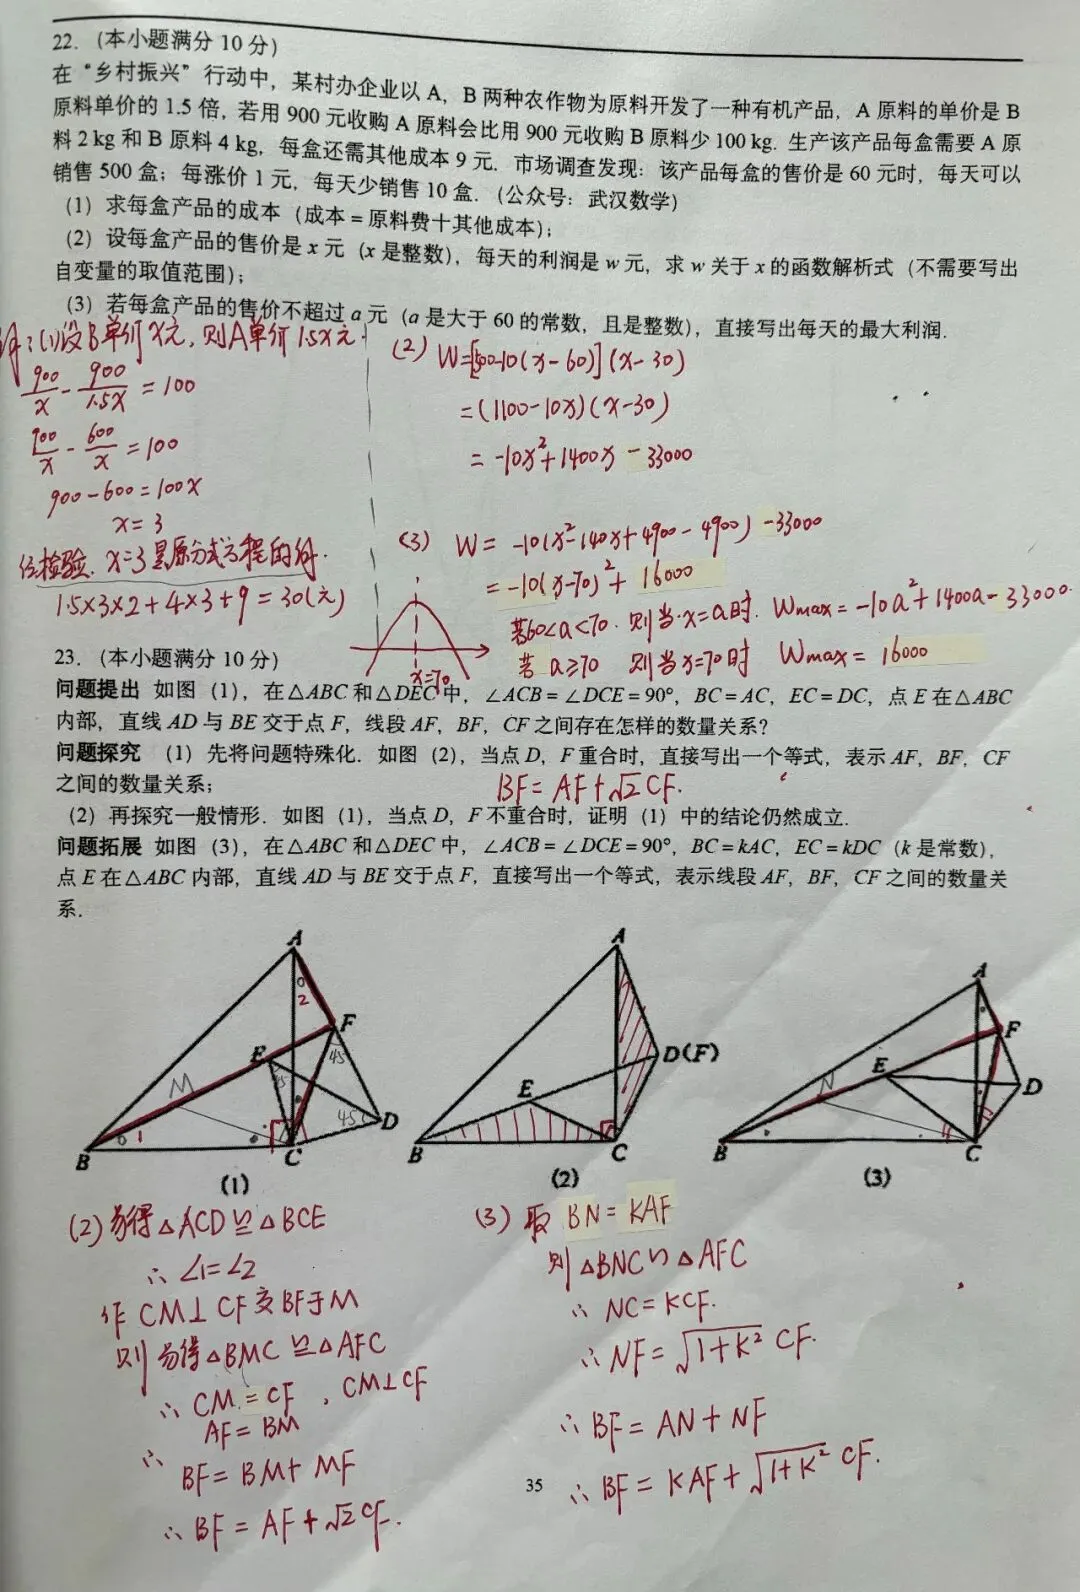 22. (本小题满分 10 分)
在“乡村振兴”行动中，某村办企业以 A，B 两种农作物为原料开发了一种有机产品，A 原料的单价是 B
原料单价的 1.5 倍，若用 900 元收购 A 原料会比用 900 元收购 B 原料少 100 kg. 生产该产品每盒需要 A 原
料 2 kg 和 B 原料 4 kg，每盒还需其他成本 9 元. 市场调查发现：该产品每盒的售价是 60 元时，每天可以
销售 500 盒；每涨价 1 元，每天少销售 10 盒. (公众号：武汉数学)
(1) 求每盒产品的成本 (成本＝原料费十其他成本)；
(2) 设每盒产品的售价是 x 元 (x 是整数)，每天的利润是 w 元，求 w 关于 x 的函数解析式 (不需要写出
自变量的取值范围)；
(3) 若每盒产品的售价不超过 a 元 (a 是大于 60 的常数，且是整数)，直接写出每天的最大利润.
解：(1)设B单价x元，则A单价1.5x元.
900/x - 900/1.5x = 100
900/x - 600/x = 100
900-600=100x
x=3
经检验. x=3是原分式方程的解.
1.5×3×2+4×3+9=30(元)
(2) W=[500-10(x-60)](x-30)
=(1100-10x)(x-30)
= -10x²+1400x-33000
(3) W= -10(x²-140x+4900-4900)-33000
= -10(x-70)²+16000
若60<a<70. 则当x=a时. Wmax=-10a²+1400a-33000.
若 a≥70 则当x=70时 Wmax=16000
x=70
23. (本小题满分 10 分)
问题提出 如图 (1)，在△ABC 和△DEC 中，∠ACB＝∠DCE＝90°，BC＝AC，EC＝DC，点 E 在△ABC
内部，直线 AD 与 BE 交于点 F，线段 AF，BF，CF 之间存在怎样的数量关系?
问题探究 (1) 先将问题特殊化. 如图 (2)，当点 D，F 重合时，直接写出一个等式，表示 AF，BF，CF
之间的数量关系；
BF=AF+√2CF.
(2) 再探究一般情形. 如图 (1)，当点 D，F 不重合时，证明 (1) 中的结论仍然成立.
问题拓展 如图 (3)，在△ABC 和△DEC 中，∠ACB＝∠DCE＝90°，BC＝kAC，EC＝kDC (k 是常数)，
点 E 在△ABC 内部，直线 AD 与 BE 交于点 F，直接写出一个等式，表示线段 AF，BF，CF 之间的数量关
系.
A
2
F
E
45
M
45
D
1
B
C
(1)
A
D(F)
E
B
C
(2)
A
F
E
N
D
B
C
(3)
(2)易得△ACD≌△BCE
∴∠1=∠2
作CM⊥CF交BF于M
则易得△BMC≌△AFC
∴CM=CF，CM⊥CF
AF=BM
∴
BF=BM+MF
∴BF=AF+√2CF.
(3) 取 BN=KAF
则△BNC∽△AFC
∴NC=KCF.
∴NF=√1+K² CF.
∴BF=AN+NF
∴BF=KAF+√1+K² CF.
35